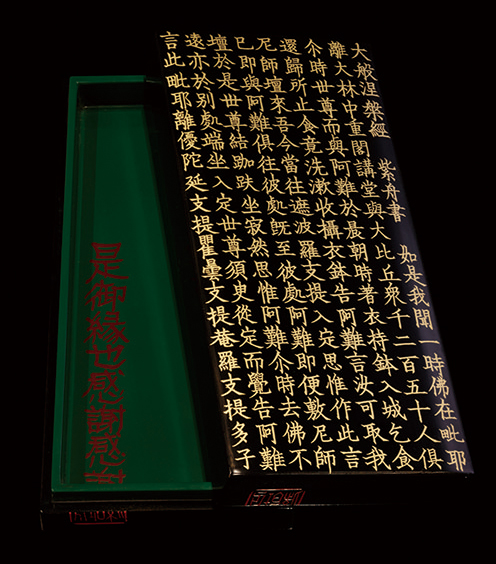 大般涅槃經　紫舟書　如是我聞一時佛在毗耶
離大林中重閣講堂與大比丘眾千二百五十人俱
尒時世尊而與阿難於晨朝時著衣持鉢入城乞食
還歸所止食竟洗漱收攝衣鉢告阿難言汝可取我
尼師壇來吾今當往遮波羅支提入定思惟作此言
已即與阿難俱往彼處既至彼處阿難即便敷尼師
壇於是世尊結跏趺坐寂然思惟阿難尒時去佛不
遠亦於別處端坐入定世尊須臾從定而覺告阿難
言此毗耶離優陀延支提瞿曇支提菴羅支提多子
是御緣也感謝感